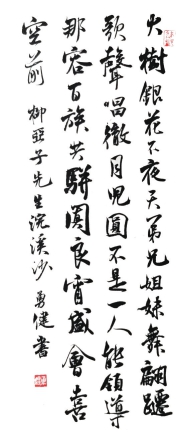 火樹銀花不夜天弟兄姐妹舞翩躚
歌聲唱徹月兒圓不是一人能領導
那容百族共駢闐良宵盛會喜
空前 柳亞子先生浣溪沙 勇健書